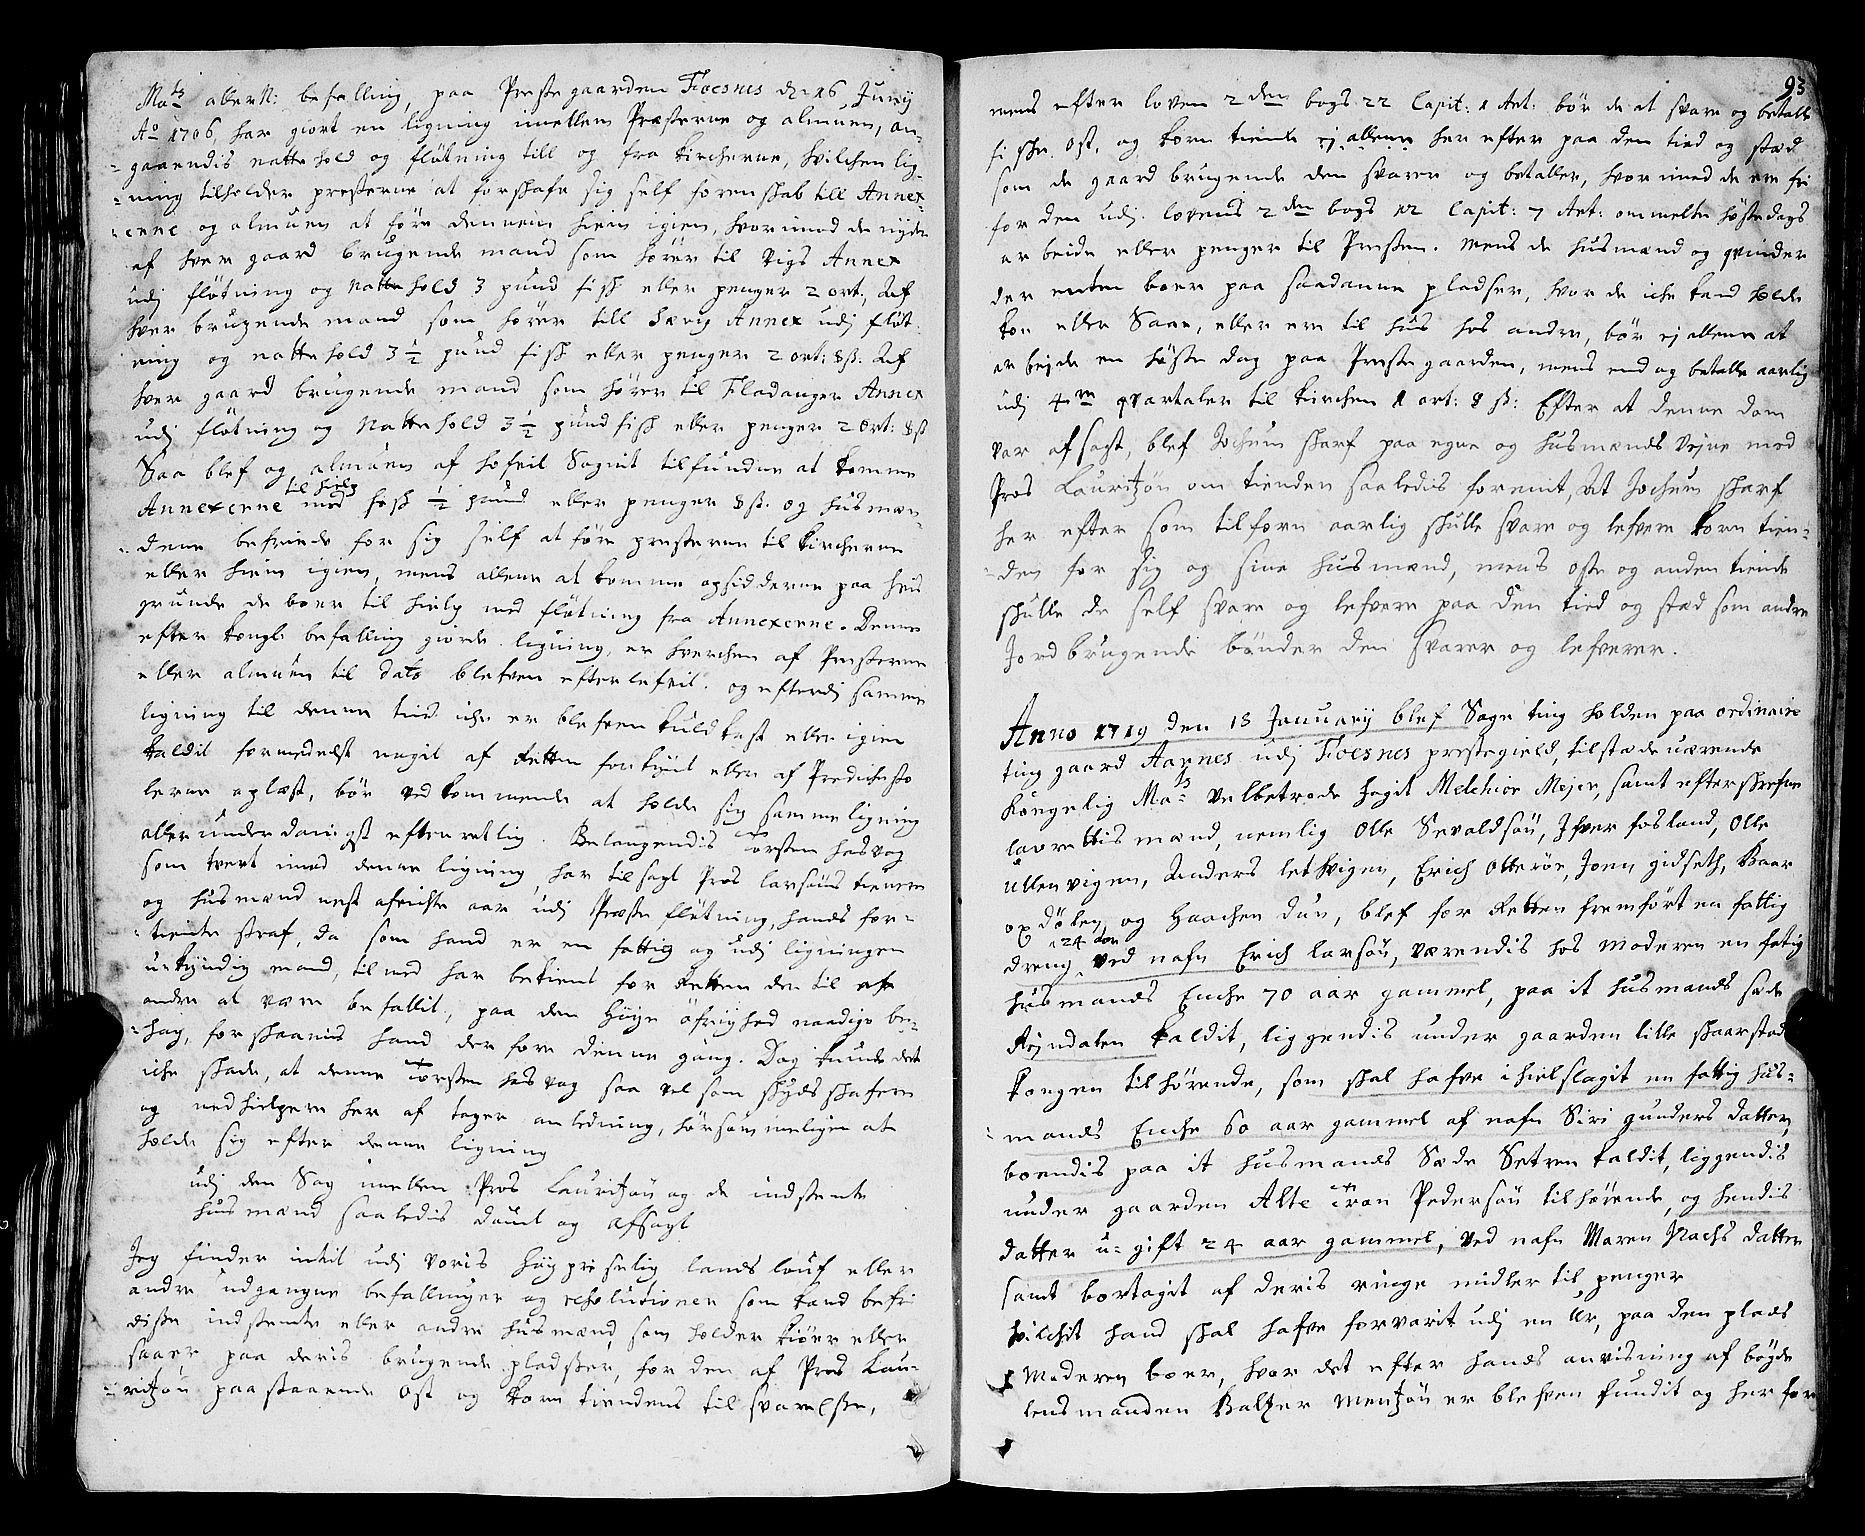 Ma:ts allern: befalling, paa Prestegaarden Foesnes d: 16 Junij
Ao 1706 har giort en ligning imellem Præsterne og almuen, an¬
gaaendis natte hold og fløtning till og fra kircherne, hvilchen lig¬
ning tilholder presterne at forskafe sig self forenskab till Annex
erne og almuen at føre dennem hiem igien, hvorimod de nyder
af hver gaard brugende mand som hører til Vigs Annex
udj fløtning og Natte hold 3 pund fisk eller penger 2 ort, Af
hver brugende mand som hører till Særvig Annex udj fløt¬
ning og natte hold 3½ pund fisk eller penger 2 ort: 8 s. Af
hver gaard brugende mand som hører til Fladanger Annex
udj fløtning og Natte hold 3½ pund fisk eller penger 2 ort: 8 s
Saa blef og almuen af hofvit Sognit tilfunden at komme
Annexerne til hielp med fisk ½ pund eller penger 8 s. og husmæn¬
dene befriede for sig self at føre presterne til kircherne
eller hiem igien, mens allene at komme opsidderne paa hvis
grunde de boer til hielp med fløtning fra Annexerne. Denne
efter kongl: befalling giorde ligning, er hverchen af Presterne
eller almuen til dato blefven efterlefvit. og efterdj samme
ligning til denne tid iche er blefven kuldkast eller igien
kaldit formedelst nogit af Retten forkynt eller af Predichesto
lerne oplæst, bør vedkommende at holde sig samme ligning
allerunderdanigst efterretlig. Belangendis Torsten hasvog
som tvert imod denne ligning, har tilsagt Pros larsøns tienere
og husmænd nest afvichte aar udj Præste fløtning, hands for¬
tiente straf, da som hand er en fattig og udj ligningen
ukyndig mand, tilmed har bekient for Retten der til af
andre at være befallit, paa den Høye øfrighed naadige be¬
hag, forskaanis hand derfore denne gang. Dog kunde det
iche skade, at denne Torsten hasvog saa vel som skydsskafere
og medhielpere her af tager anledning, hørsommeligen at
holde sig efter denne ligning
udj den Sag imellem Pros Lauritzøn og de indstente
husmænd saaledis dømt og afsagt
Jeg finder intit udj voris høypriselig lands louf eller
andre udgangne befallinger og resolutioner som kand befri
disse indstente eller andre husmænd, som holder kiøer eller
saaer paa deris brugende pladser, for den af Pros Lau¬
ritzøn paastaaende Ost og korn tiendens til svarelse,
93
mens efter loven 2den bogs 22 Capit: 1 Art: bør de at svare og betalle
fiske, Ost, og korn tiende ej allene her efter paa den tied og stæd
som de gaard brugende den svarer og betaller, hvor imod de ere fri
for den udj lovens 2den bogs 12 Capit: 7 Art: ommelte høstedags
arbeide eller penger til Presten. mens de husmænd og qvinder
der enten boer paa saadanne pladser, hvor de iche kand holde
koe eller Saae, eller ere til hus hos andre, bør ej allene at
arbejde en høste dag paa Prestegaarden, mens end og betalle aarlig
udj 4re qvartaler til kirchen 1 ort: 8 s: Efter at denne dom
var afsagt, blef Jochum skarf paa egne og husmænds vejne med
Pros Lauritzøn om tienden saaledis forenit, At Jochum skarf
her efter som tilforn aarlig skulle svare og lefvere korn tien¬
den for sig og sine husmænd, mens oste og anden tiende
skulle de self svare og lefvere paa den tied og stæd som andre
Jordbrugende bønder den svarer og lefverer.
Anno 1719 den 18 January blef Sage ting holden paa ordinaire
ting gaard Aarnes udj Foesnes prestegield, tilstæde værende
kongelig Ma:ts velbetrode fogit Melchior Mejer, samt efterskrefne
laurettis mænd, nemlig Olle Sevaldsøn, Jfver fosland, Olle
Ullenvigen, Anders letvigen, Erich Otterøe, Joen gidseth, Baar
opdølen, og Haachen Dun, blef for Retten fremført en fattig
dreng 24 aar ved nafn Erich larsøn, værendis hos moderen en fatig
husmands Enche 70 aar gammel, paa it husmands sæde
Røjndalen kaldit, liggendis under gaarden lille skaarstad
kongen tilhørende, som skal hafve ihielslagit en fattig hus¬
mands Enche 60 aar gammel af nafn Siri gunders datter,
boendis paa it husmands Sæde Setren kaldit, liggendis
under gaarden Alte Iron Pedersøn tilhørende, og hendis
datter u-gift 24 aar gammel, ved nafn Maren Isachs datter
samt bortagit af deris ringe midler til penger
hvilchit hand skal hafve forvarit udj en Ur, paa den plads
Moderen boer, hvor det efter hands anvisning af bøyde
lensmanden Baltzer Mentzøn er blefven fundit og her for